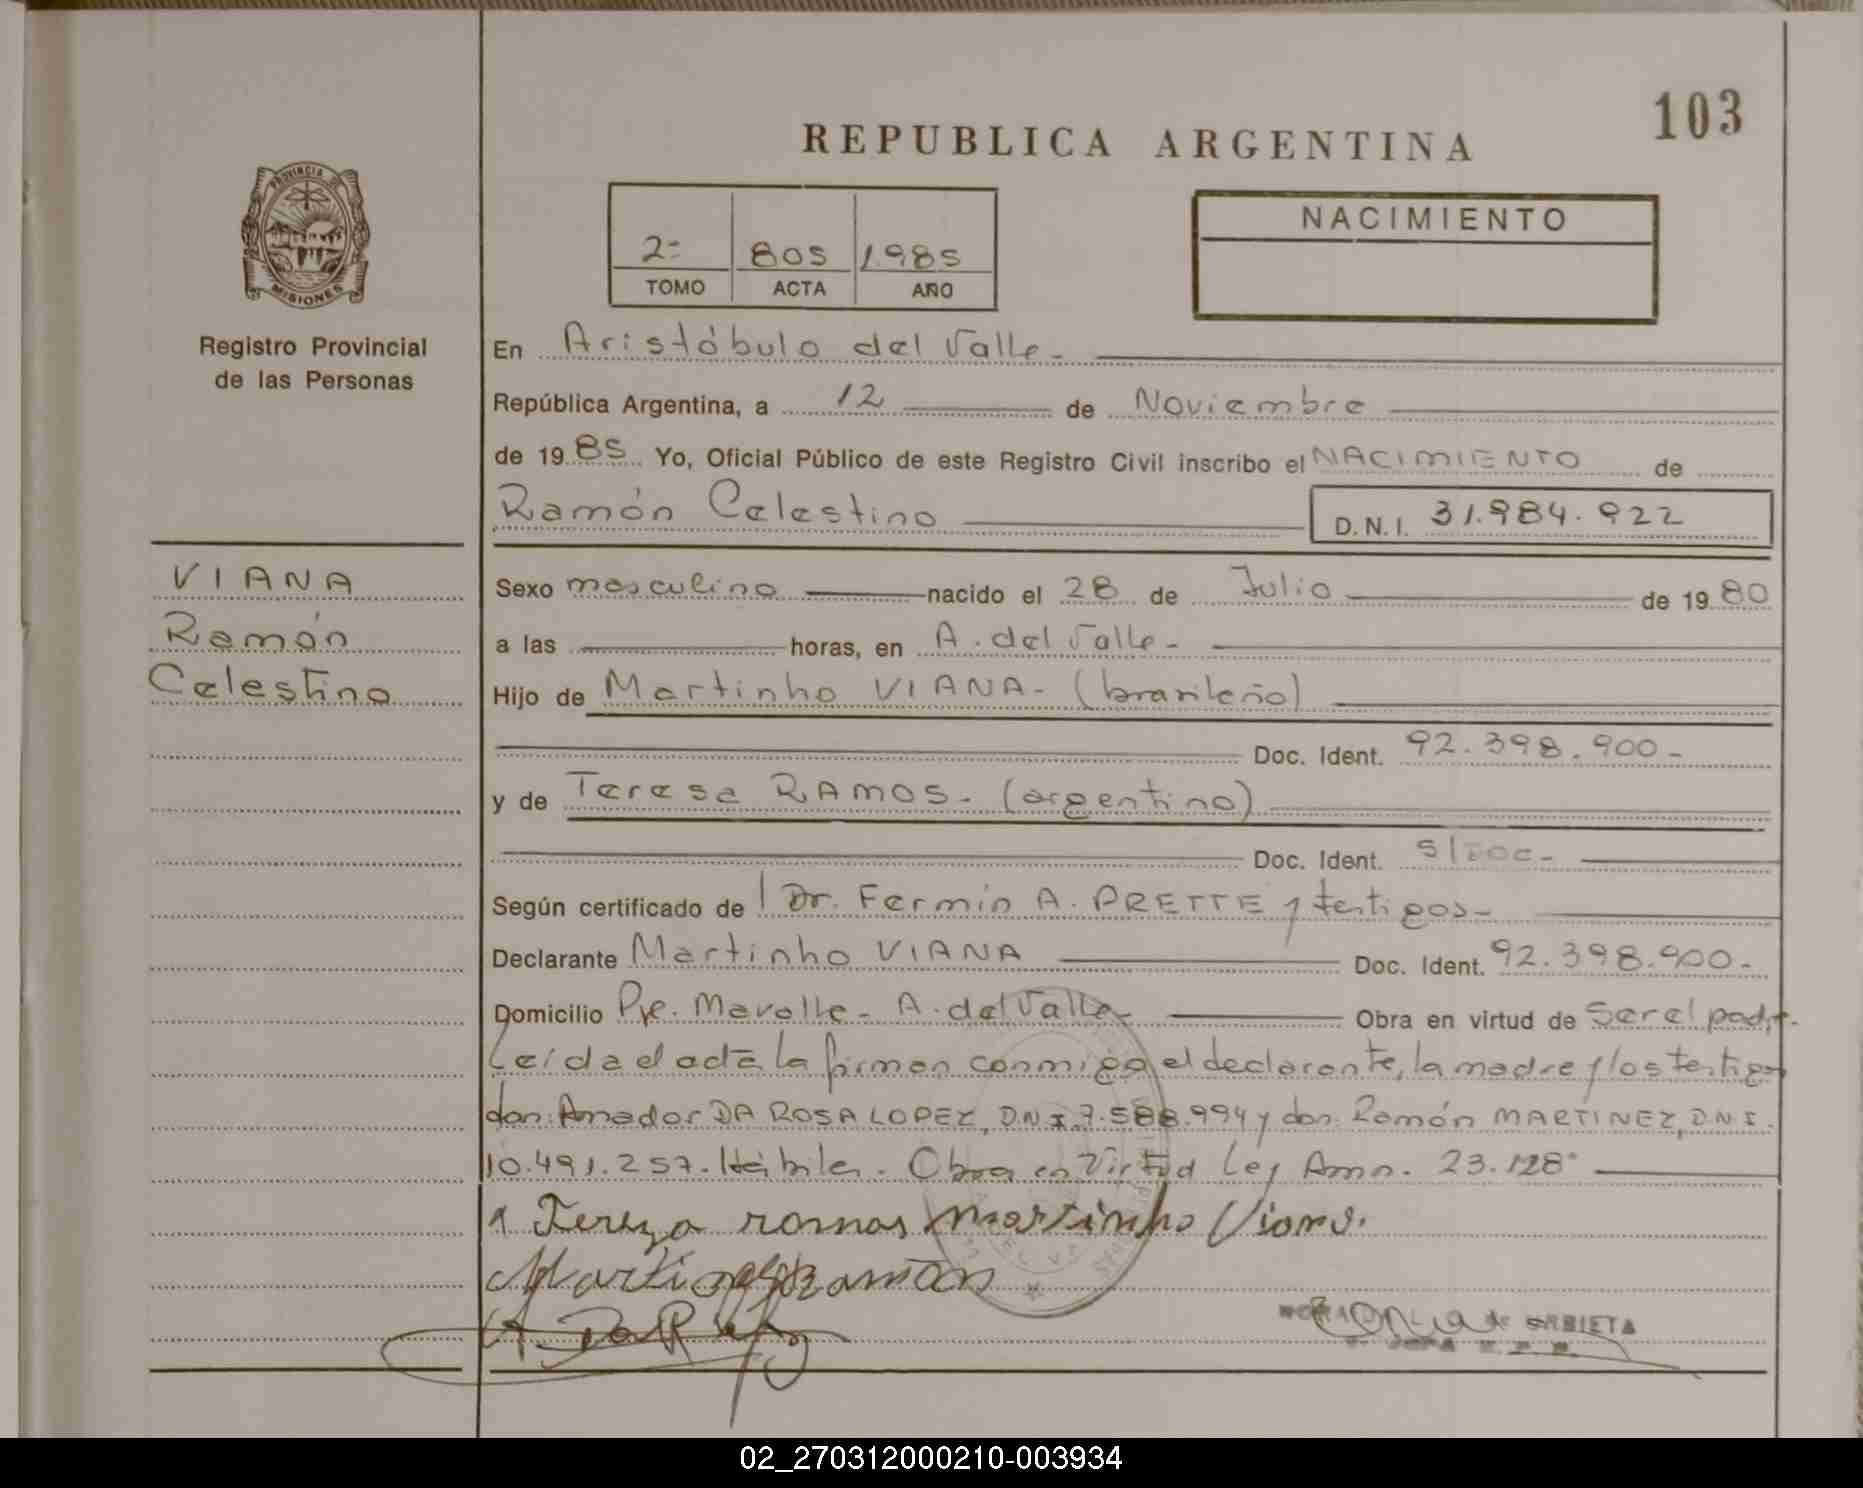 103
REPUBLICA ARGENTINA
PROVINCIA DE
MISIONES
Registro Provincial
de las Personas
2= 805 1.985
TOMO ACTA AÑO
NACIMIENTO
En Aristóbulo del Valle-
República Argentina, a 12 de Noviembre
de 1985 Yo, Oficial Público de este Registro Civil inscribo el NACIMIENTO de
Ramón Celestino D.N.I. 31.984.922
VIANA
Ramón
Celestino
Sexo masculino nacido el 28 de Julio de 1980
a las horas, en A. del Valle-
Hijo de Martinho VIANA- (brasileño)
Doc. Ident. 92.398.900-
y de Teresa RAMOS- (argentina)
Doc. Ident. S/DOC-
Según certificado de Dr. Fermín A. PRETTE y testigos-
Declarante Martinho VIANA Doc. Ident. 92.398.900-
Domicilio Pje. Mavalle- A. del Valle- Obra en virtud de Ser el padre.
Leída el acta la firman conmigo el declarante, la madre y los testigos
don: Amador DA ROSA LOPEZ, D.N.I. 7.588.994 y don: Ramón MARTINEZ, D.N.I.
10.491.257. Hábiles. Obra en Virtud Ley Amn. 23.128
Tereza romas Martinho Viana.
Martinez Ramón
A. Da R
DE URBIETA